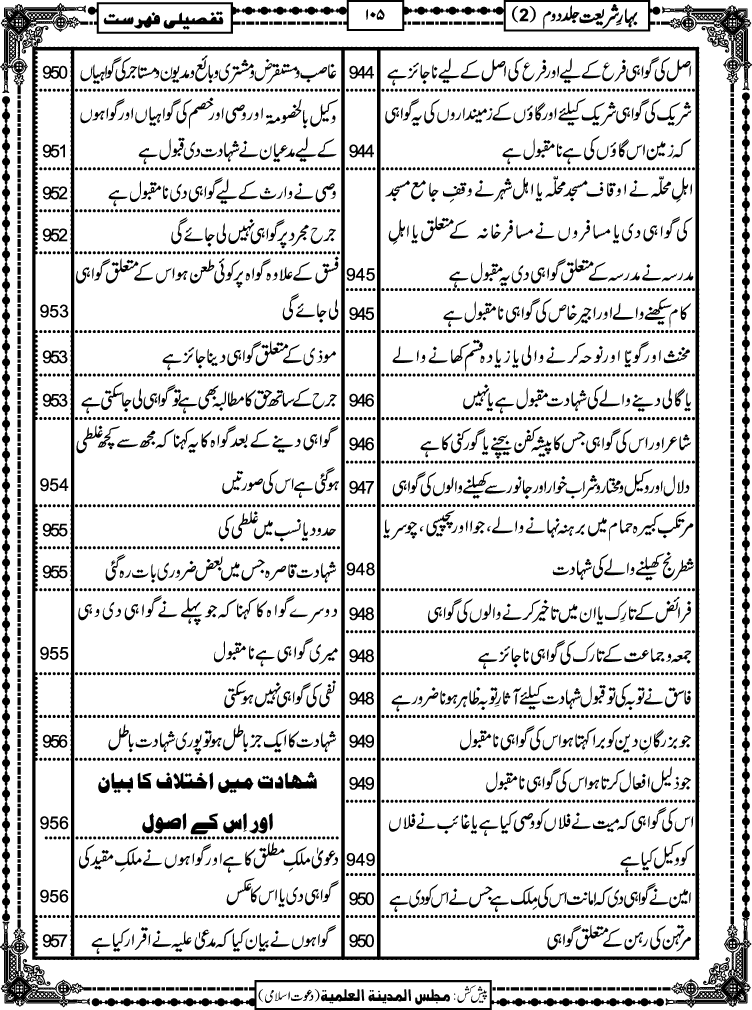 بہارِ شریعت جلد دوم (2)
۱۰۵
تفصیلی فہرست
اصل کی گواہی فرع کے لیے اور فرع کی اصل کے لیے ناجائز ہے 944
شریک کی گواہی شریک کیلئے اور گاؤں کے زمینداروں کی یہ گواہی
کہ زمین اس گاؤں کی ہے نامقبول ہے 944
اہلِ محلّہ نے اوقاف مسجد محلّہ یا اہل شہر نے وقفِ جامع مسجد
کی گواہی دی یا مسافروں نے مسافر خانہ کے متعلق یا اہلِ
مدرسہ نے مدرسہ کے متعلق گواہی دی یہ مقبول ہے 945
کام سیکھنے والے اور اجیر خاص کی گواہی نامقبول ہے 945
مخنث اور گویّا اور نوحہ کرنے والی یا زیادہ قسم کھانے والے
یا گالی دینے والے کی شہادت مقبول ہے یا نہیں 946
شاعر اور اس کی گواہی جس کا پیشہ کفن بیچنے یا گورکنی کا ہے 946
دلال اور وکیل و مختار و شراب خوار اور جانور سے کھیلنے والوں کی گواہی 947
مرتکب کبیرہ حمام میں برہنہ نہانے والے، جوا اور پچیسی، چوسر یا
شطرنج کھیلنے والے کی شہادت 948
فرائض کے تارک یا ان میں تاخیر کرنے والوں کی گواہی 948
جمعہ و جماعت کے تارک کی گواہی ناجائز ہے 948
فاسق نے توبہ کی تو قبول شہادت کیلئے آثارِ توبہ ظاہر ہونا ضرور ہے 948
جو بزرگانِ دین کو برا کہتا ہو اس کی گواہی نامقبول 949
جو ذلیل افعال کرتا ہو اس کی گواہی نامقبول 949
اس کی گواہی کہ میت نے فلاں کو وصی کیا ہے یا غائب نے فلاں
کو وکیل کیا ہے 949
امین نے گواہی دی کہ امانت اس کی مِلک ہے جس نے اس کو دی ہے 950
مرتہن کی رہن کے متعلق گواہی 950
غاصب و مستقرض و مشتری و بائع و مدیون و مستاجر کی گواہیاں 950
وکیل بالخصومۃ اور وصی اور خصم کی گواہیاں اور گواہوں
کے لیے مدعیان نے شہادت دی قبول ہے 951
وصی نے وارث کے لیے گواہی دی نامقبول ہے 952
جرح مجرد پر گواہی نہیں لی جائے گی 952
فسق کے علاوہ گواہ پر کوئی طعن ہو اس کے متعلق گواہی
لی جائے گی 953
موذی کے متعلق گواہی دینا جائز ہے 953
جرح کے ساتھ حق کا مطالبہ بھی ہے تو گواہی لی جاسکتی ہے 953
گواہی دینے کے بعد گواہ کا یہ کہنا کہ مجھ سے کچھ غلطی
ہوگئی ہے اس کی صورتیں 954
حدود یا نسب میں غلطی کی 955
شہادت قاصرہ جس میں بعض ضروری بات رہ گئی 955
دوسرے گواہ کا کہنا کہ جو پہلے نے گواہی دی وہی
میری گواہی ہے نامقبول 955
نفی کی گواہی نہیں ہوسکتی
شہادت کا ایک جز باطل ہو تو پوری شہادت باطل 956
شہادت میں اختلاف کا بیان
اور اِس کے اصول 956
دعویٰ ملکِ مطلق کا ہے اور گواہوں نے ملکِ مقید کی
گواہی دی یا اس کا عکس 956
گواہوں نے بیان کیا کہ مدعیٰ علیہ نے اقرار کیا ہے 957
پیش کش: مجلس المدینۃ العلمیۃ (دعوت اسلامی)